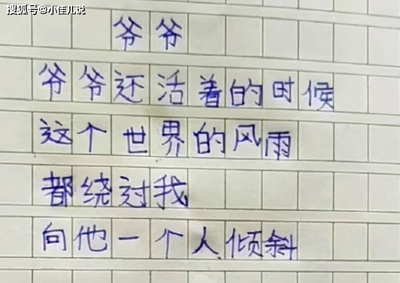 搜狐号@小佳儿说
爷爷
爷爷还活着的时候
这个世界的风雨
都绕过我
向他一个人倾斜